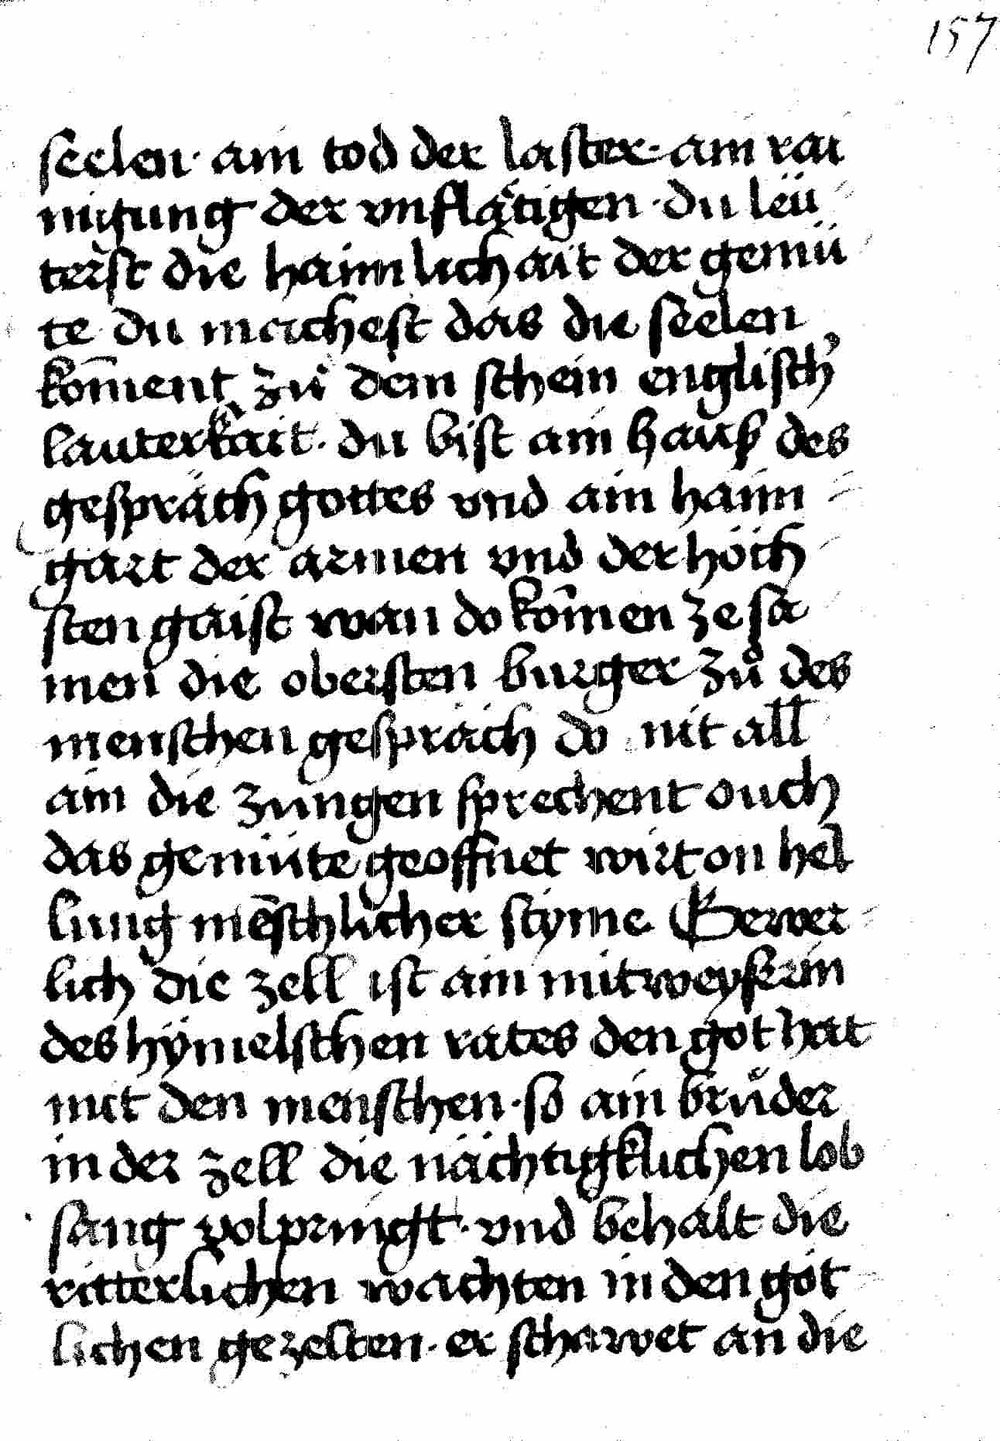 157
seelen · ain tod der laster · ain rai
nigung der vnflätigen · du leü
terst die haimlichait der gemü
te du machest das die seelen
kom̄ent zuͦ dem schein englisch͛
lauterkait · du bist ain hauß des
gespräch gottes vnd ain haim
gart der armen vnd der höch
sten gaist wan do kom̄en ze sa
men die obersten burger zuͦ des
menschen gespräch do nit all
ain die zungen sprechent ouch
das gemüte geoffnet wirt on hel
lung mēschlicher styme Gewer
lich die zell ist ain mitweyserin
des hÿmelschen rates den got hat
mit den menschen · so ain bruͦder
in der zell die nächtigklichen lob
sang volpringt · vnd behalt die
ritterlichen wachten in den göt
lichen gezelten · er schawet an die